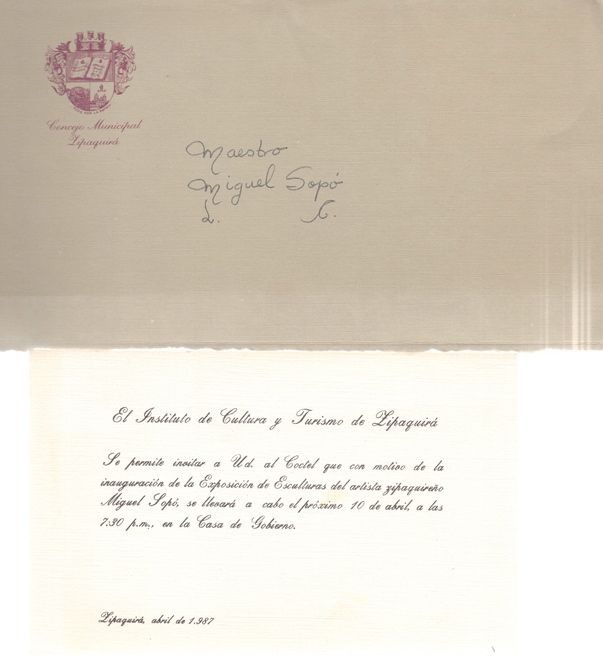 Concejo Municipal
Zipaquirá
Maestro
Miguel Sopó
L. C.
El Instituto de Cultura y Turismo de Zipaquirá
Se permite invitar a Ud. al Coctel que con motivo de la
inauguración de la Exposición de Esculturas del artista zipaquireño
Miguel Sopó, se llevará a cabo el próximo 10 de abril, a las
7:30 p.m., en la Casa de Gobierno.
Zipaquirá, abril de 1.987